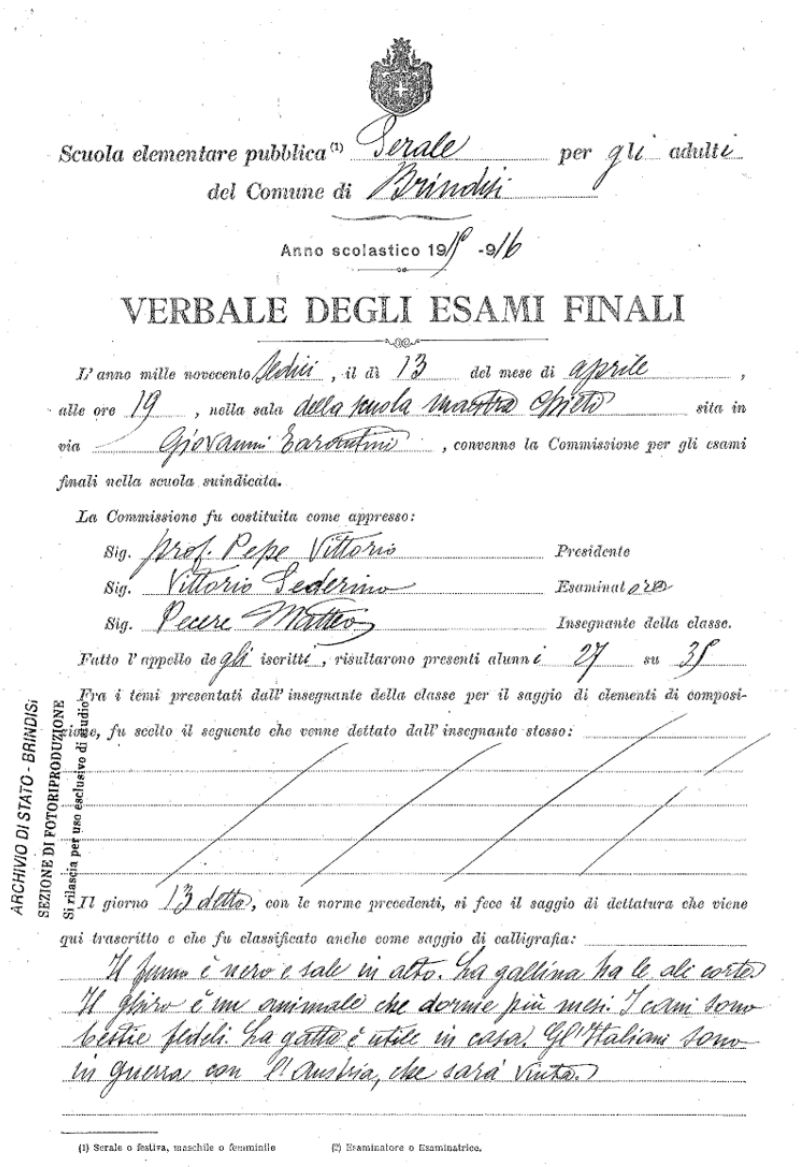 Scuola elementare pubblica (1) Serale per gli adulti
del Comune di Brindisi
Anno scolastico 1915-916
VERBALE DEGLI ESAMI FINALI
L'anno mille novecento sedici, il dì 13 del mese di aprile,
alle ore 19, nella sala della scuola maestra sita in
via Giovanni Tarantini, convenne la Commissione per gli esami
finali nella scuola suindicata.
La Commissione fu costituita come appresso:
Sig. prof. Pepe Vittorio Presidente
Sig. Vittorio Esaminatore
Sig. Pecere Matteo Insegnante della classe.
Fatto l'appello degli iscritti, risultarono presenti alunni 27 su 35
Fra i temi presentati dall'insegnante della classe per il saggio di elementi di composi-
zione, fu scelto il seguente che venne dettato dall'insegnante stesso:
Il giorno 13 detto, con le norme precedenti, si fece il saggio di dettatura che viene
qui trascritto e che fu classificato anche come saggio di calligrafia:
Il fumo è nero e sale in alto. La gallina ha le ali corte.
Il ghiro è un animale che dorme più mesi. I cani sono
bestie fedeli. La gatta è utile in casa. Gl'Italiani sono
in guerra con l'Austria, che sarà vinta.
(1) Serale o festiva, maschile o femminile (2) Esaminatore o Esaminatrice.
ARCHIVIO DI STATO - BRINDISI
SEZIONE DI FOTORIPRODUZIONE
Si rilascia per uso esclusivo di studio